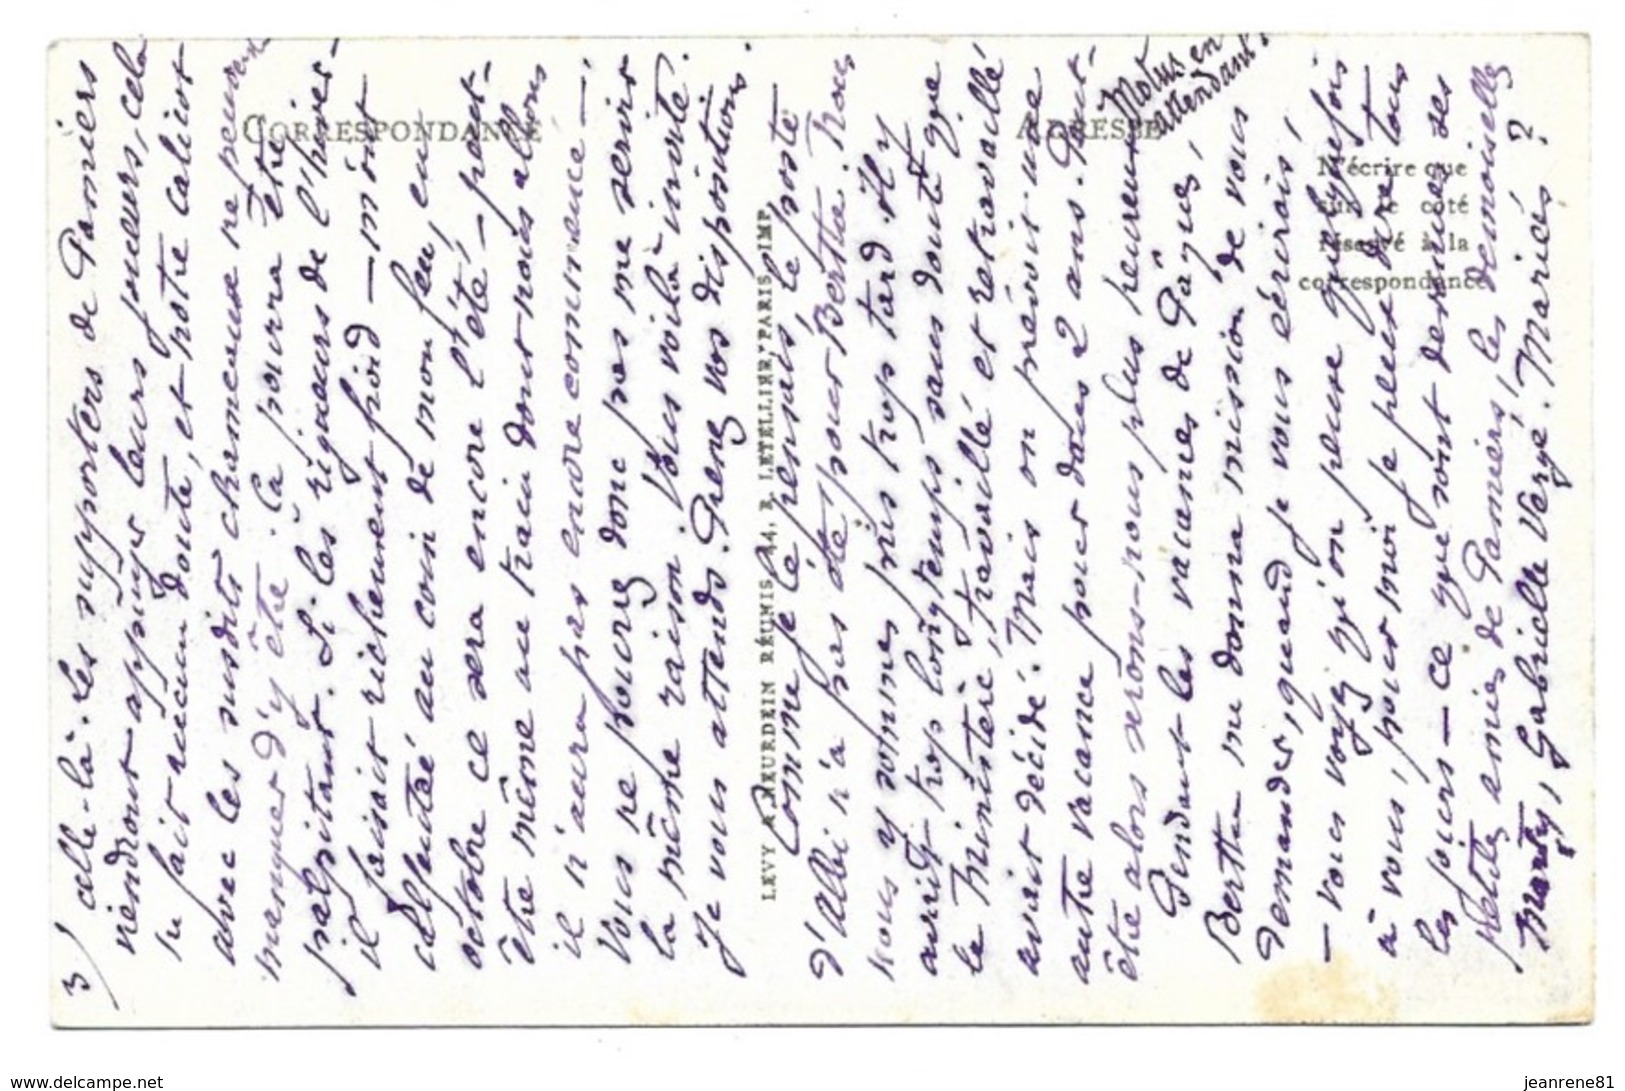 3) celle-là. Les supporters de Pamiers
viendront appuyer leurs joueurs, cela
ne fait aucun doute, et notre calicot
avec les susdits chanceux ne peuvent
manquer d'y être. Ça pourra être
palpitant. Si les rigueurs de l'hiver
il faisait richement froid — m'ont
calfeutré au coin de mon feu, en
octobre ce sera encore l'été — peut-
être même au train dont nous allons
il n'aura pas encore commencé —.
Vous ne pouvez donc pas me servir
la même raison. Vous voilà invité.
Je vous attends. Prenez vos dispositions.
Comme je le pensais, le poste
d'Albi n'a pas été pour Bertha. Nous
nous y sommes pris trop tard. Il y
avait trop longtemps sans doute que
le Ministère, travaillé et retravaillé
avait décidé. Mais on prévoit une
autre vacance pour dans 2 ans. Peut-
être alors serons-nous plus heureux.
Motus en
attendant !
Pendant les vacances de Pâques,
Bertha me donna mission de vous
demander, quand je vous écrirais,
— vous voyez qu'on pense quelquefois
à vous, pour moi je pense dire tous
les jours — ce que sont devenues ses
petites amies de Pamiers, les demoiselles
Marty, Gabrielle Vergé. Mariées ?
CORRESPONDANCE
ADRESSE
N'écrire que
sur le côté
réservé à la
correspondance
LEVY & NEURDEIN RÉUNIS, 44, R. LETELLIER, PARIS IMP.
www.delcampe.net
jeanrene81